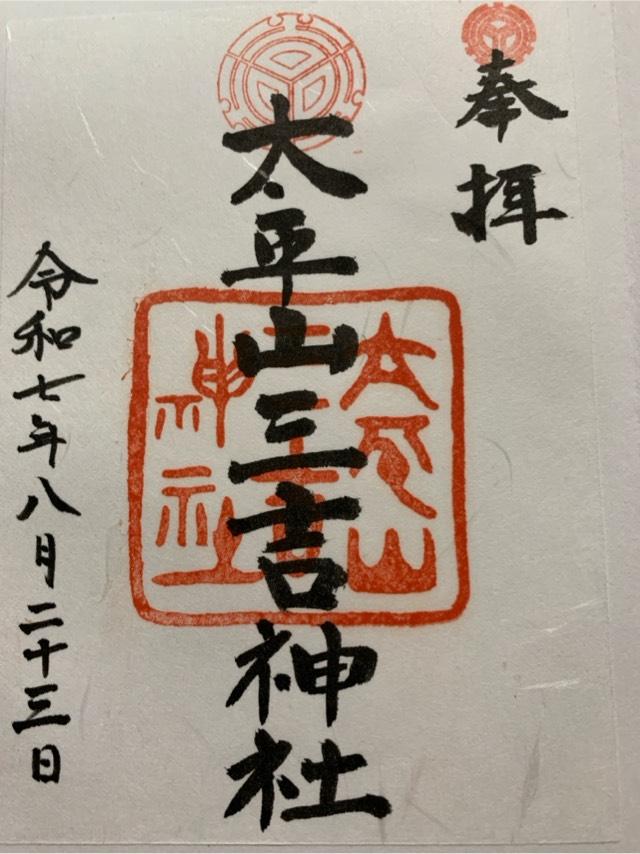 奉拝
太平山三吉神社
太平山三吉神社
令和七年八月二十三日